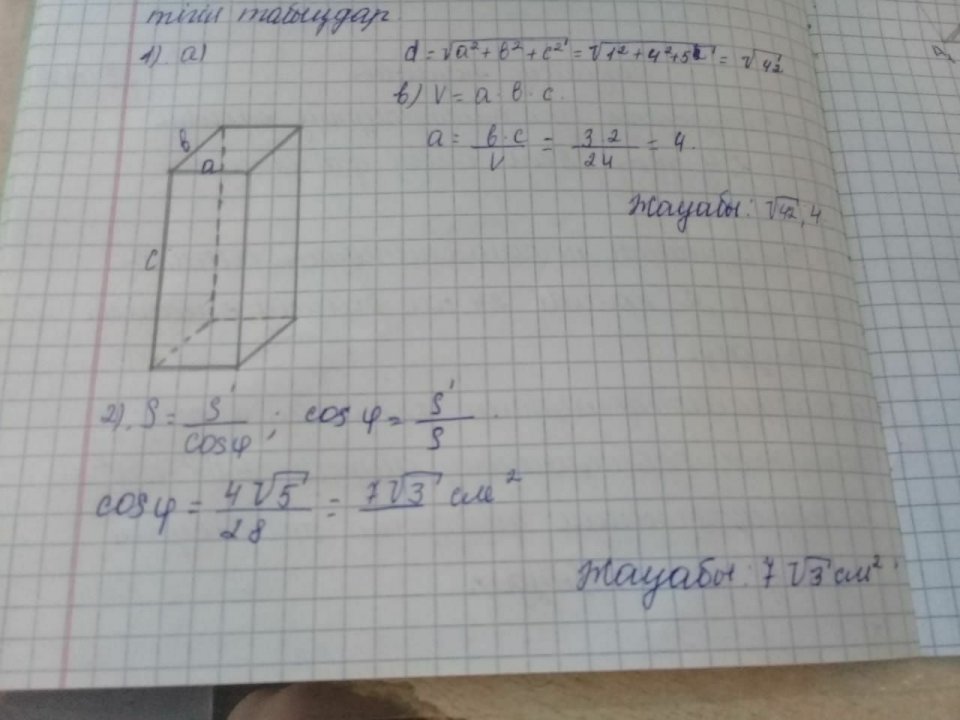 тігін табыңдар.
1). а)
d = √a² + b² + c² = √1² + 4² + 5² = √42
в) V = a · b · c.
a = b·c / V = 32 / 24 = 4.
Жауабы: √42, 4
в
a
c
2). S = S' / cosφ ; cosφ = S' / S
cosφ = 4√5 / 28 = 7√3 см²
Жауабы: 7√3 см²